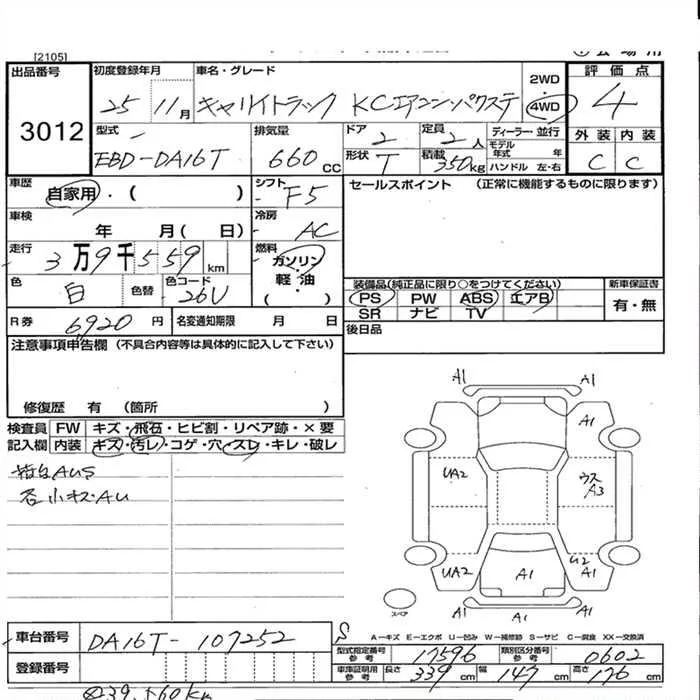 [2105]
出品番号
3012
初度登録年月
25 11月
車名・グレード
キャリイトラック KCエアコン・パワステ
2WD
4WD
評価点
4
型式
EBD-DA16T
排気量
660 cc
ドア 2
定員 2人
ディーラー・並行
モデル年式 年
形状 T
積載 350kg
ハンドル 左・右
外装 内装
C C
車歴 自家用・( )
シフト F5
車検 年 月( 日)
冷房 AC
走行 3万9千559km
燃料 ガソリン・軽油 ( )
色 白 色替 色コード 26U
R券 6,920円 名変通知期限 月 日
セールスポイント (正常に機能するものに限ります)
装備品(純正品に限り○をつけてください)
新車保証書
PS PW ABS エアB
有・無
SR ナビ TV
後日品
注意事項申告欄 (不具合内容等は具体的に記入して下さい)
修復歴 有 (箇所
検査員 FW キズ・飛石・ヒビ割・リペア跡・×要
記入欄 内装 キズ・汚レ・コゲ・穴・スレ・キレ・破レ
小キズ・AU
A1 A1
A1
UA2
ウス A3
UA2
A1
U2 A1
A1 A1
スペア
A-キズ E-エクボ U-凹み W-補修跡 S-サビ C-腐食 XX-交換済
車台番号 DA16T-107252
登録番号
型式指定番号 参考 17596
類別区分番号 参考 0602
車庫証明用 参考 長さ 339cm 幅 147cm 高さ 176cm